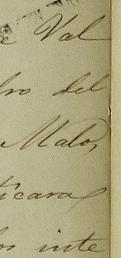 e Val
ro del
Mato,
ticara
los inte